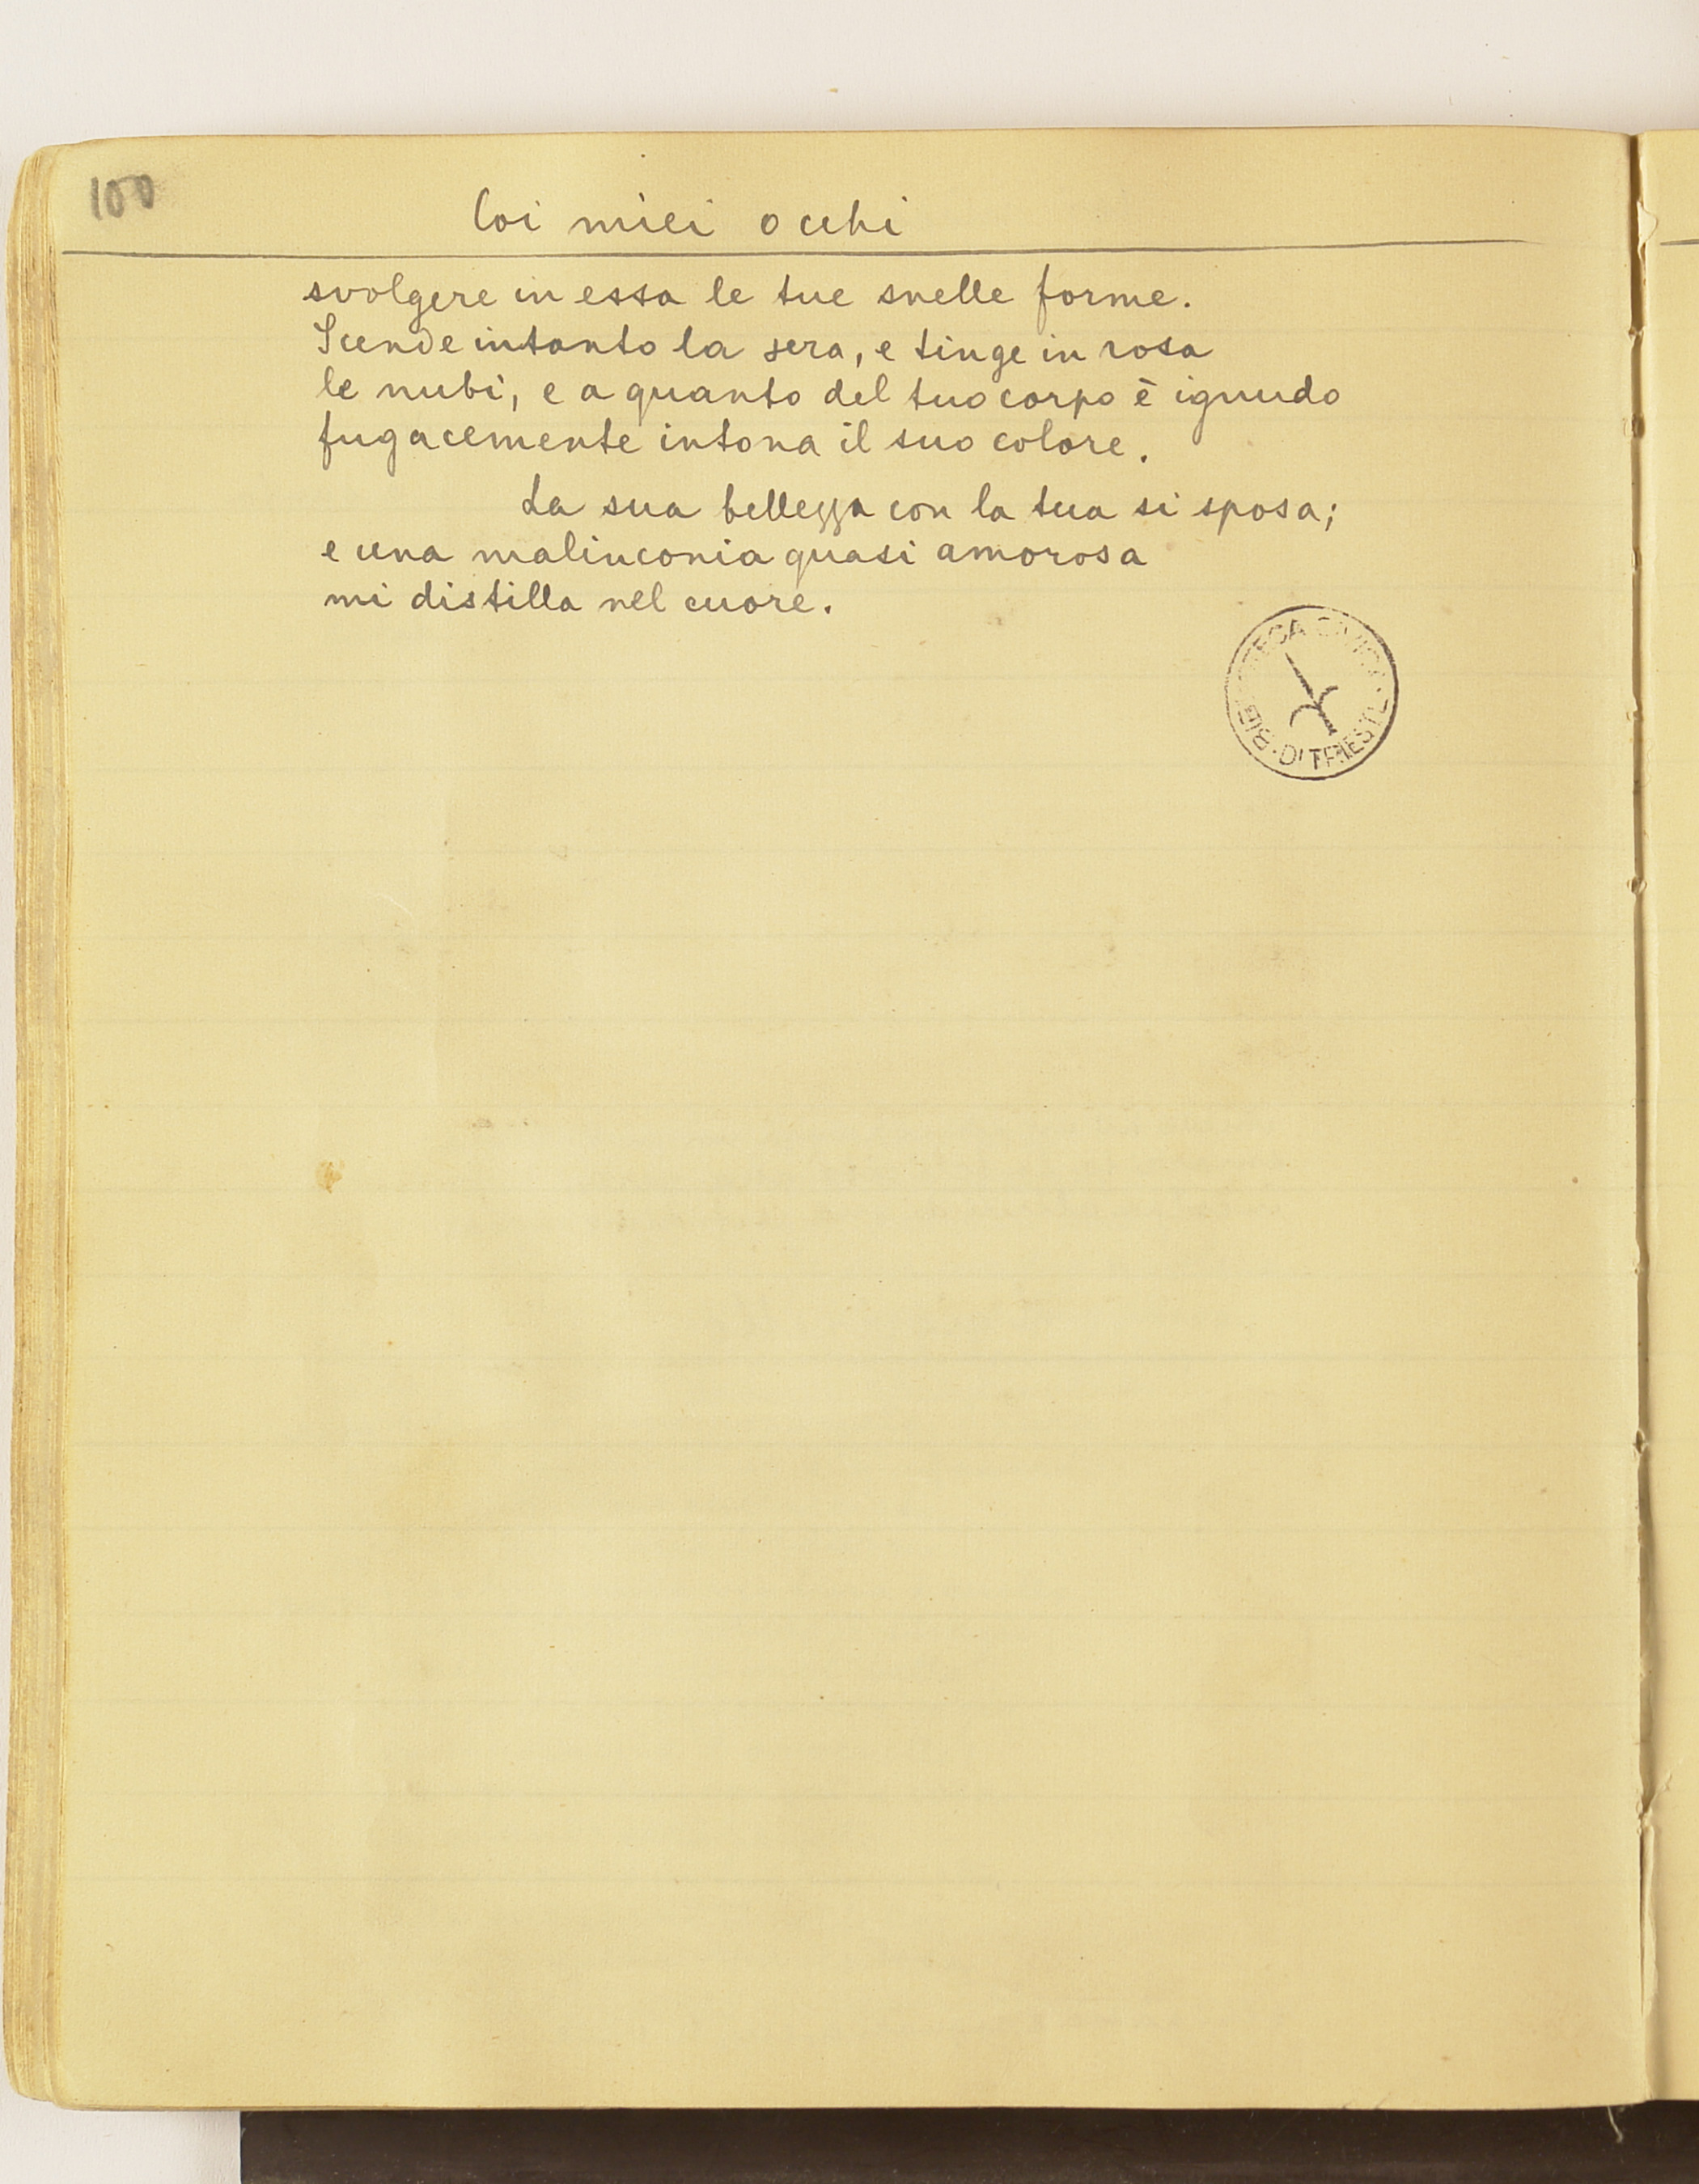 100
Coi miei occhi
svolgere in essa le tue snelle forme.
Scende intanto la sera, e tinge in rosa
le nubi, e a quanto del tuo corpo è ignudo
fugacemente intona il suo colore.
La sua bellezza con la tua si sposa;
e una malinconia quasi amorosa
mi distilla nel cuore.
BIBLIOTECA CIVICA · DI TRIESTE ·